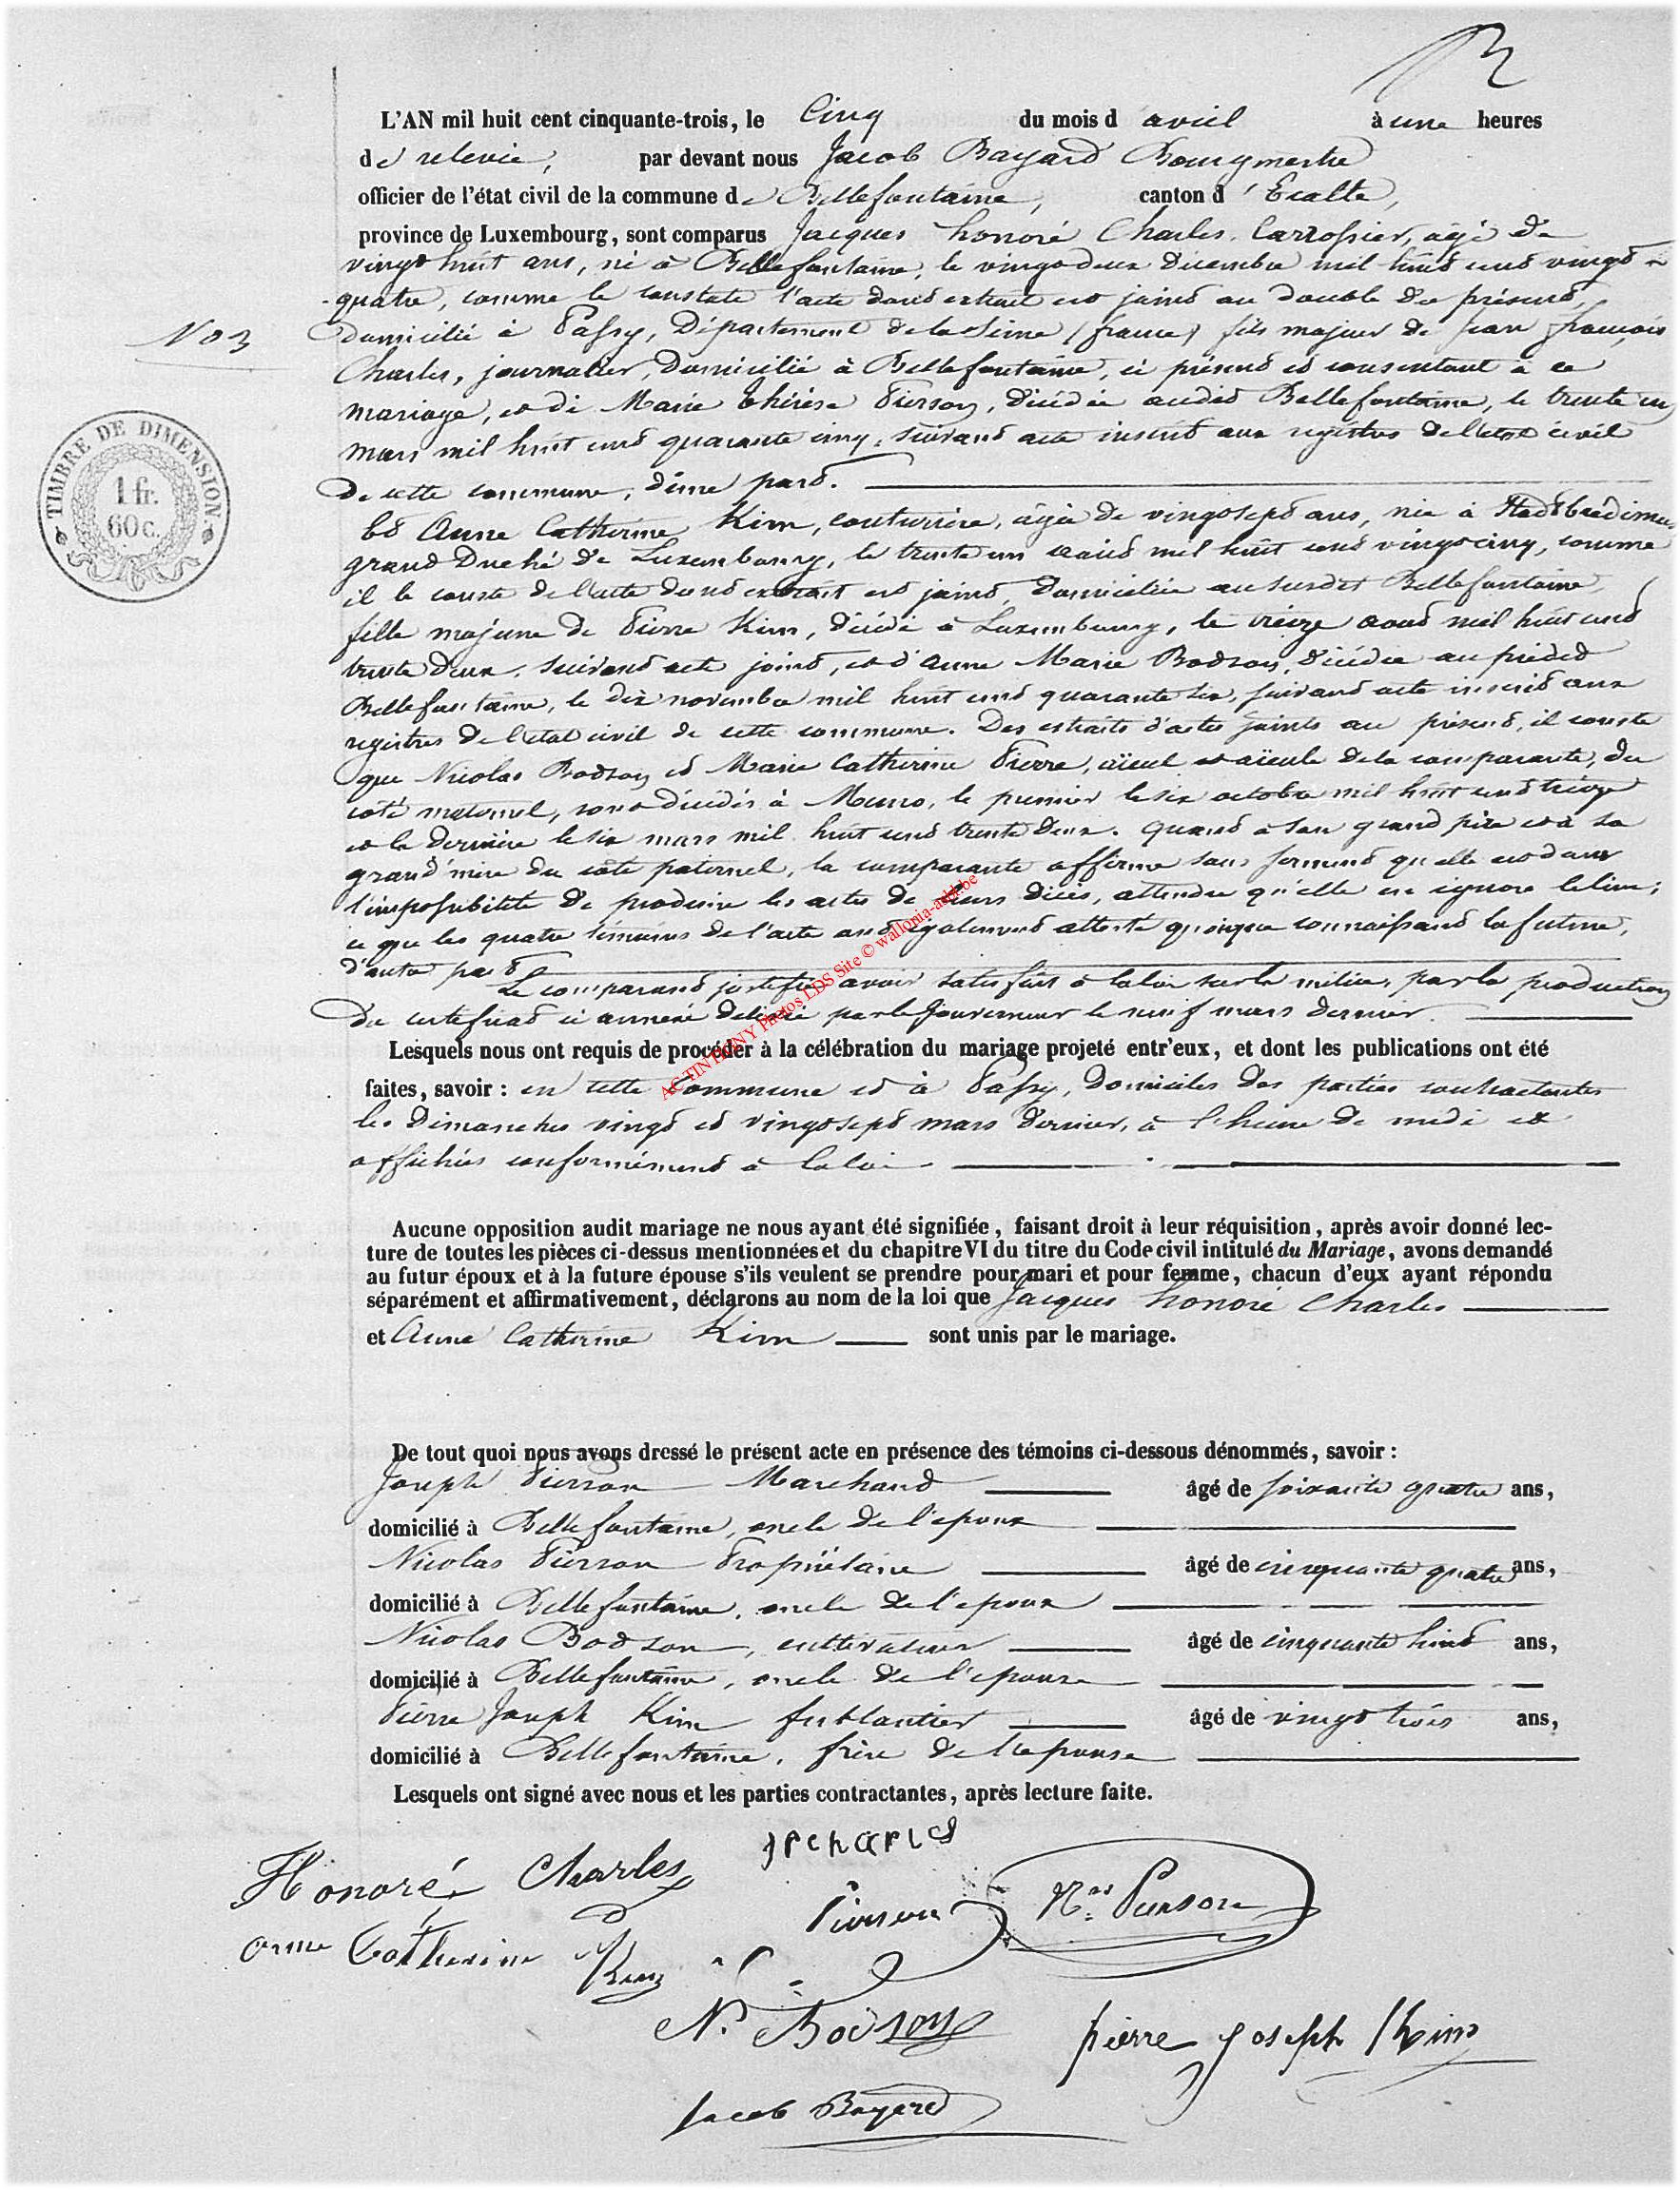 L'AN mil huit cent cinquante-trois, le Cinq du mois d avril à une heures
de relevée, par devant nous Jacob Bayard Bourgmestre
officier de l'état civil de la commune de Bellefontaine, canton d'Etalle,
province de Luxembourg, sont comparus Jacques honoré Charles, Carrossier, âgé de
vingt huit ans, né à Bellefontaine, le vingt deux décembre mil huit cent vingt
quatre, comme le constate l'acte dont extrait est joint au double du présent,
No 3
domicilié à Passy, Département de la Seine (france) fils majeur de jean françois
Charles, journalier, domicilié à Bellefontaine, ci présent et consentant à ce
mariage, et de Marie thérèse Pierson, décédée audit Bellefontaine, le trente un
mars mil huit cent quarante cinq, suivant acte inscrit aux registres de l'état civil
de cette commune, d'une part.
Et Anne Catherine Kim, couturière, âgée de vingt sept ans, née à Stadtbredimus,
grand Duché de Luxembourg, le trente un août mil huit cent vingt cinq, comme
il le conste de l'acte dont extrait est joint, domiciliée au susdit Bellefontaine,
fille majeure de Pierre Kim, décédé à Luxembourg, le treize août mil huit cent
trente deux, suivant acte joint, et d'Anne Marie Bodson, décédée au prédit
Bellefontaine, le dix novembre mil huit cent quarante six, suivant acte inscrit aux
registres de l'état civil de cette commune. Des extraits d'actes joints au présent, il conste
que Nicolas Bodson et Marie Catherine Pierre, aïeul et aïeule de la comparante, du
coté maternel, sont décédés à Muno, le premier le six octobre mil huit cent treize
et la dernière le six mars mil huit cent trente deux. Quand à son grand père et à sa
grand'mère du coté paternel, la comparante affirme sous serment qu'elle est dans
l'impossibilité de produire les actes de leurs décès, attendu qu'elle en ignore le lieu;
ce que les quatre témoins de l'acte ont également attesté quoique connaissant la future,
d'autre part
Le comparant justifie avoir satisfait à la loi sur la milice, par la production
du certificat ci annexé délivré par le Gouverneur le neuf mars dernier.
Lesquels nous ont requis de procéder à la célébration du mariage projeté entr'eux, et dont les publications ont été
faites, savoir : en cette Commune et à Passy, domiciles des parties contractantes
les Dimanches vingt et vingt sept mars dernier, à l'heure de midi et
affichées conformément à la loi
Aucune opposition audit mariage ne nous ayant été signifiée, faisant droit à leur réquisition, après avoir donné lec-
ture de toutes les pièces ci-dessus mentionnées et du chapitre VI du titre du Code civil intitulé du Mariage, avons demandé
au futur époux et à la future épouse s'ils veulent se prendre pour mari et pour femme, chacun d'eux ayant répondu
séparément et affirmativement, déclarons au nom de la loi que Jacques honoré Charles
et Anne Catherine Kim sont unis par le mariage.
De tout quoi nous avons dressé le présent acte en présence des témoins ci-dessous dénommés, savoir :
Joseph Pierson Marchand âgé de soixante quatre ans,
domicilié à Bellefontaine, oncle de l'epoux
Nicolas Pierson Propriétaire âgé de cinquante quatre ans,
domicilié à Bellefontaine, oncle de l'epoux
Nicolas Bodson, cultivateur âgé de cinquante huit ans,
domicilié à Bellefontaine, oncle de l'epouse
Pierre Joseph Kim ferblantier âgé de vingt trois ans,
domicilié à Bellefontaine, frère de l'epouse
Lesquels ont signé avec nous et les parties contractantes, après lecture faite.
Honoré Charles
Pierson
Nas Pierson
anne Catherine Kim
N. Bodson
pierre joseph Kim
Jacob Bayard
TIMBRE DE DIMENSION
1 fr.
60 c.
AC TINTIGNY Photos LDS Site © wallonia-asbl.be